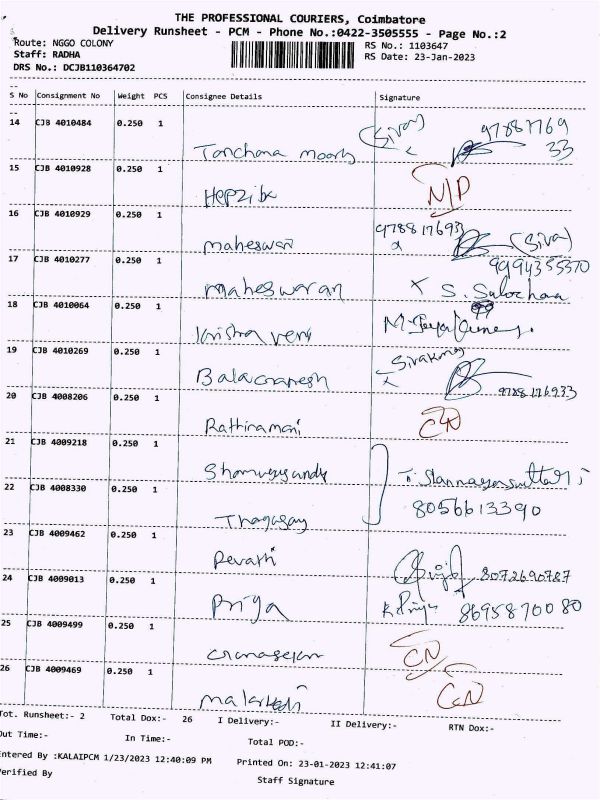 THE PROFESSIONAL COURIERS, Coimbatore
Delivery Runsheet - PCM - Phone No.:0422-3505555 - Page No.:2
Route: NGGO COLONY
RS No.: 1103647
Staff: RADHA
RS Date: 23-Jan-2023
DRS No.: DCJB110364702
S No Consignment No Weight PCS Consignee Details Signature
14 CJB 4010484 0.250 1
(Siva) 97881769
33
15 CJB 4010928 0.250 1
Hepziba N/P
16 CJB 4010929 0.250 1
maheswari 9788176933 (Siva)
17 CJB 4010277 0.250 1
9994355570
maheswaran x S. Sulochna
18 CJB 4010064 0.250 1
Krishna veni
19 CJB 4010269 0.250 1
Sivakumar
Balaganesh 9788176933
20 CJB 4008206 0.250 1
Rathinamani CN
21 CJB 4009218 0.250 1
22 CJB 4008330 0.250 1
8056613390
23 CJB 4009462 0.250 1
Revathi 8072690787
24 CJB 4009013 0.250 1
Priya K. Priya 8695870080
25 CJB 4009499 0.250 1
Gunasekaran CN
26 CJB 4009469 0.250 1
CN
Tot. Runsheet:- 2 Total Dox:- 26 I Delivery:- II Delivery:- RTN Dox:-
Out Time:- In Time:- Total POD:-
Entered By :KALAIPCM 1/23/2023 12:40:09 PM Printed On: 23-01-2023 12:41:07
Verified By Staff Signature